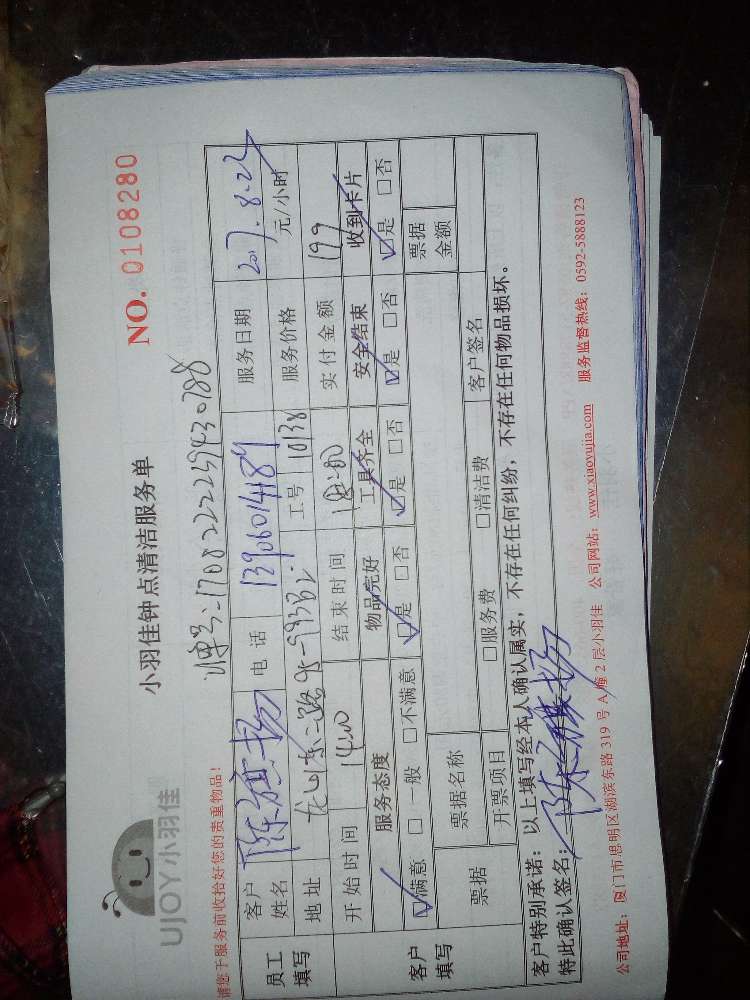 UJOY小羽佳
小羽佳钟点清洁服务单
NO. 0108280
请您于服务前收拾好您的贵重物品!
单号:1708222259430788
员工填写
客户姓名 陈旗扬 电话 13906014189 服务日期 2017.8.22
地址 龙山东二路 工号 10138 服务价格 元/小时
开始时间 14:00 结束时间 18:00 实付金额 199
客户填写
服务态度 物品完好 工具齐全 安全结束 收到卡片
☑满意 □一般 □不满意 ☑是 □否 ☑是 □否 ☑是 □否 ☑是 □否
票据 票据名称 票据金额
开票项目 □服务费 □清洁费 客户签名
客户特别承诺:以上填写经本人确认属实,不存在任何纠纷,不存在任何物品损坏。
特此确认签名: 陈旗扬
公司地址:厦门市思明区湖滨东路 319 号 A 幢 2 层小羽佳 公司网站:www.xiaoyujia.com 服务监督热线:0592-5888123